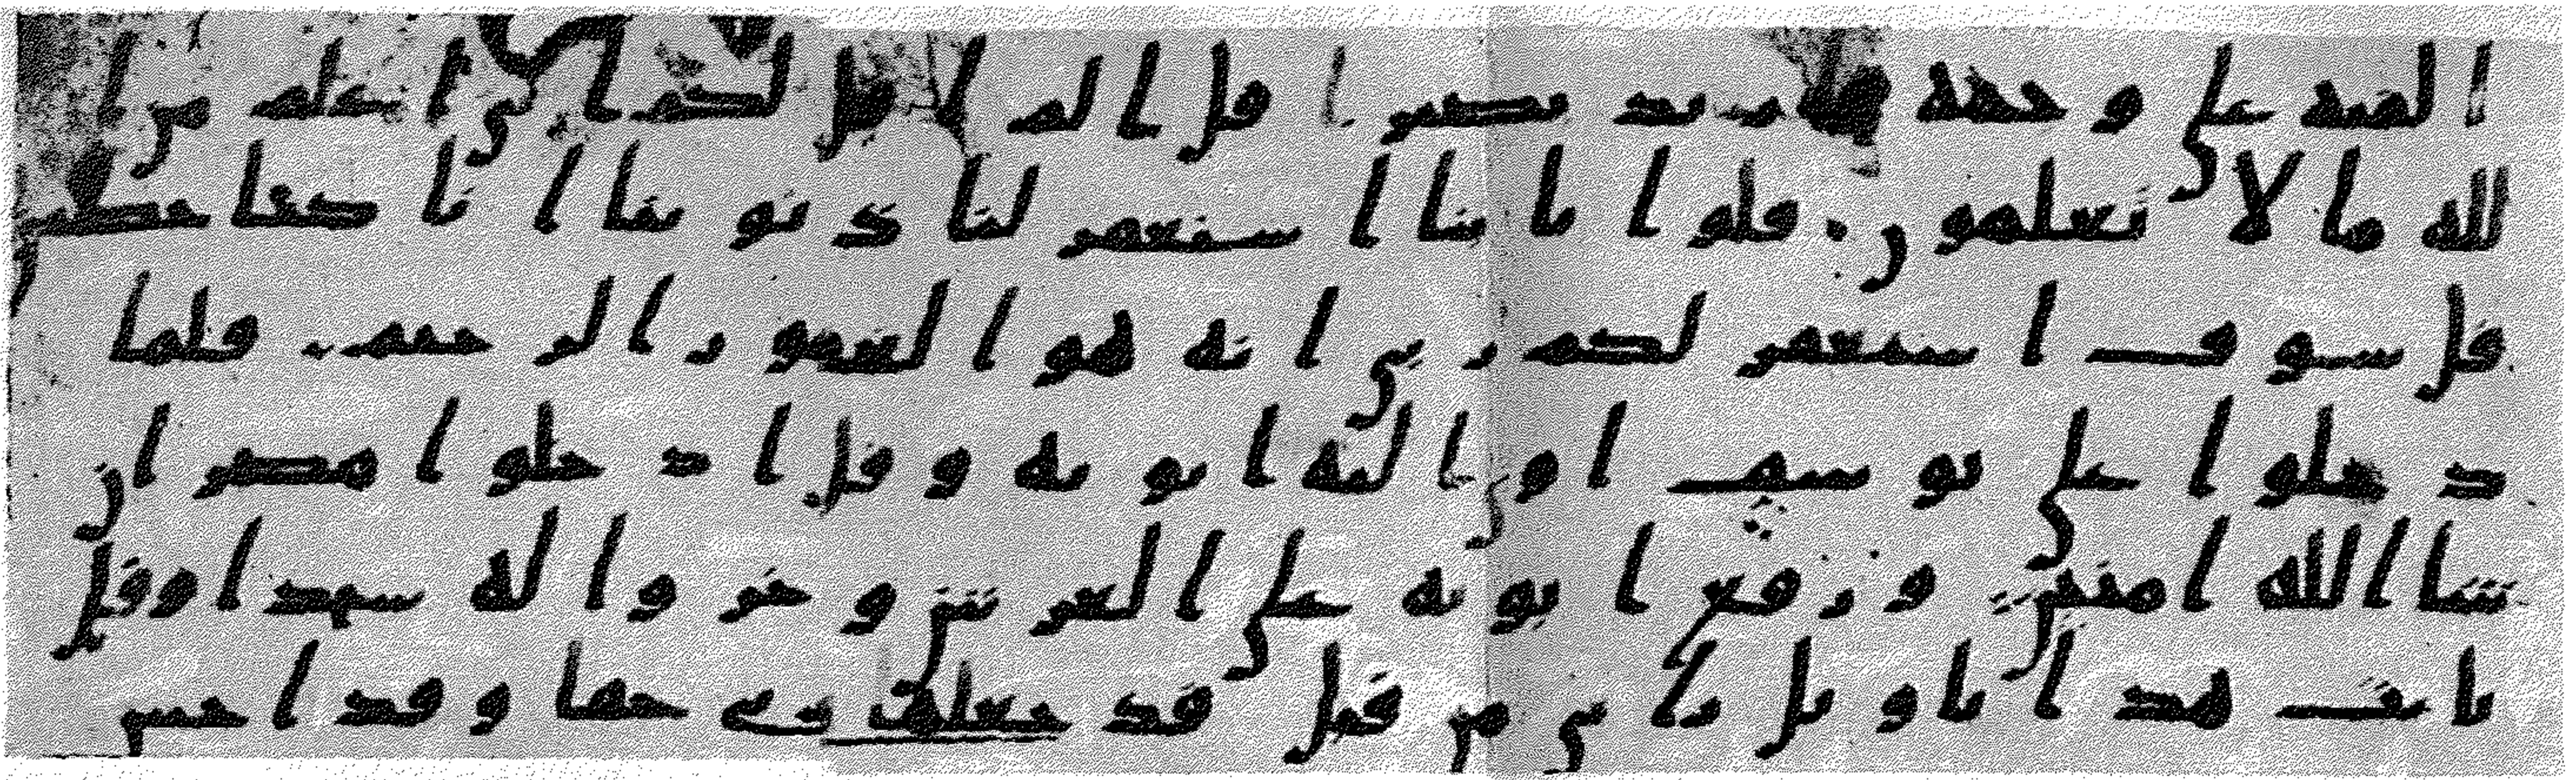 القيه على وجهه فارتد بصيرا قل الم اقل لكم اني اعلم من ا
لله ما لا تعلمون قلوا يابانا استغفر لنا ذنوبنا انا كنا خطين
قل سوف استغفر لكم ربي انه هو الغفور الرحيم فلما
دخلوا على يوسف اوى اليه ابويه وقل ادخلوا مصر ان
شا الله امنين ورفع ابويه على العرش وخروا له سجدا وقل
يابت هذا تاويل رياي من قبل قد جعلها ربي حقا وقد احسن